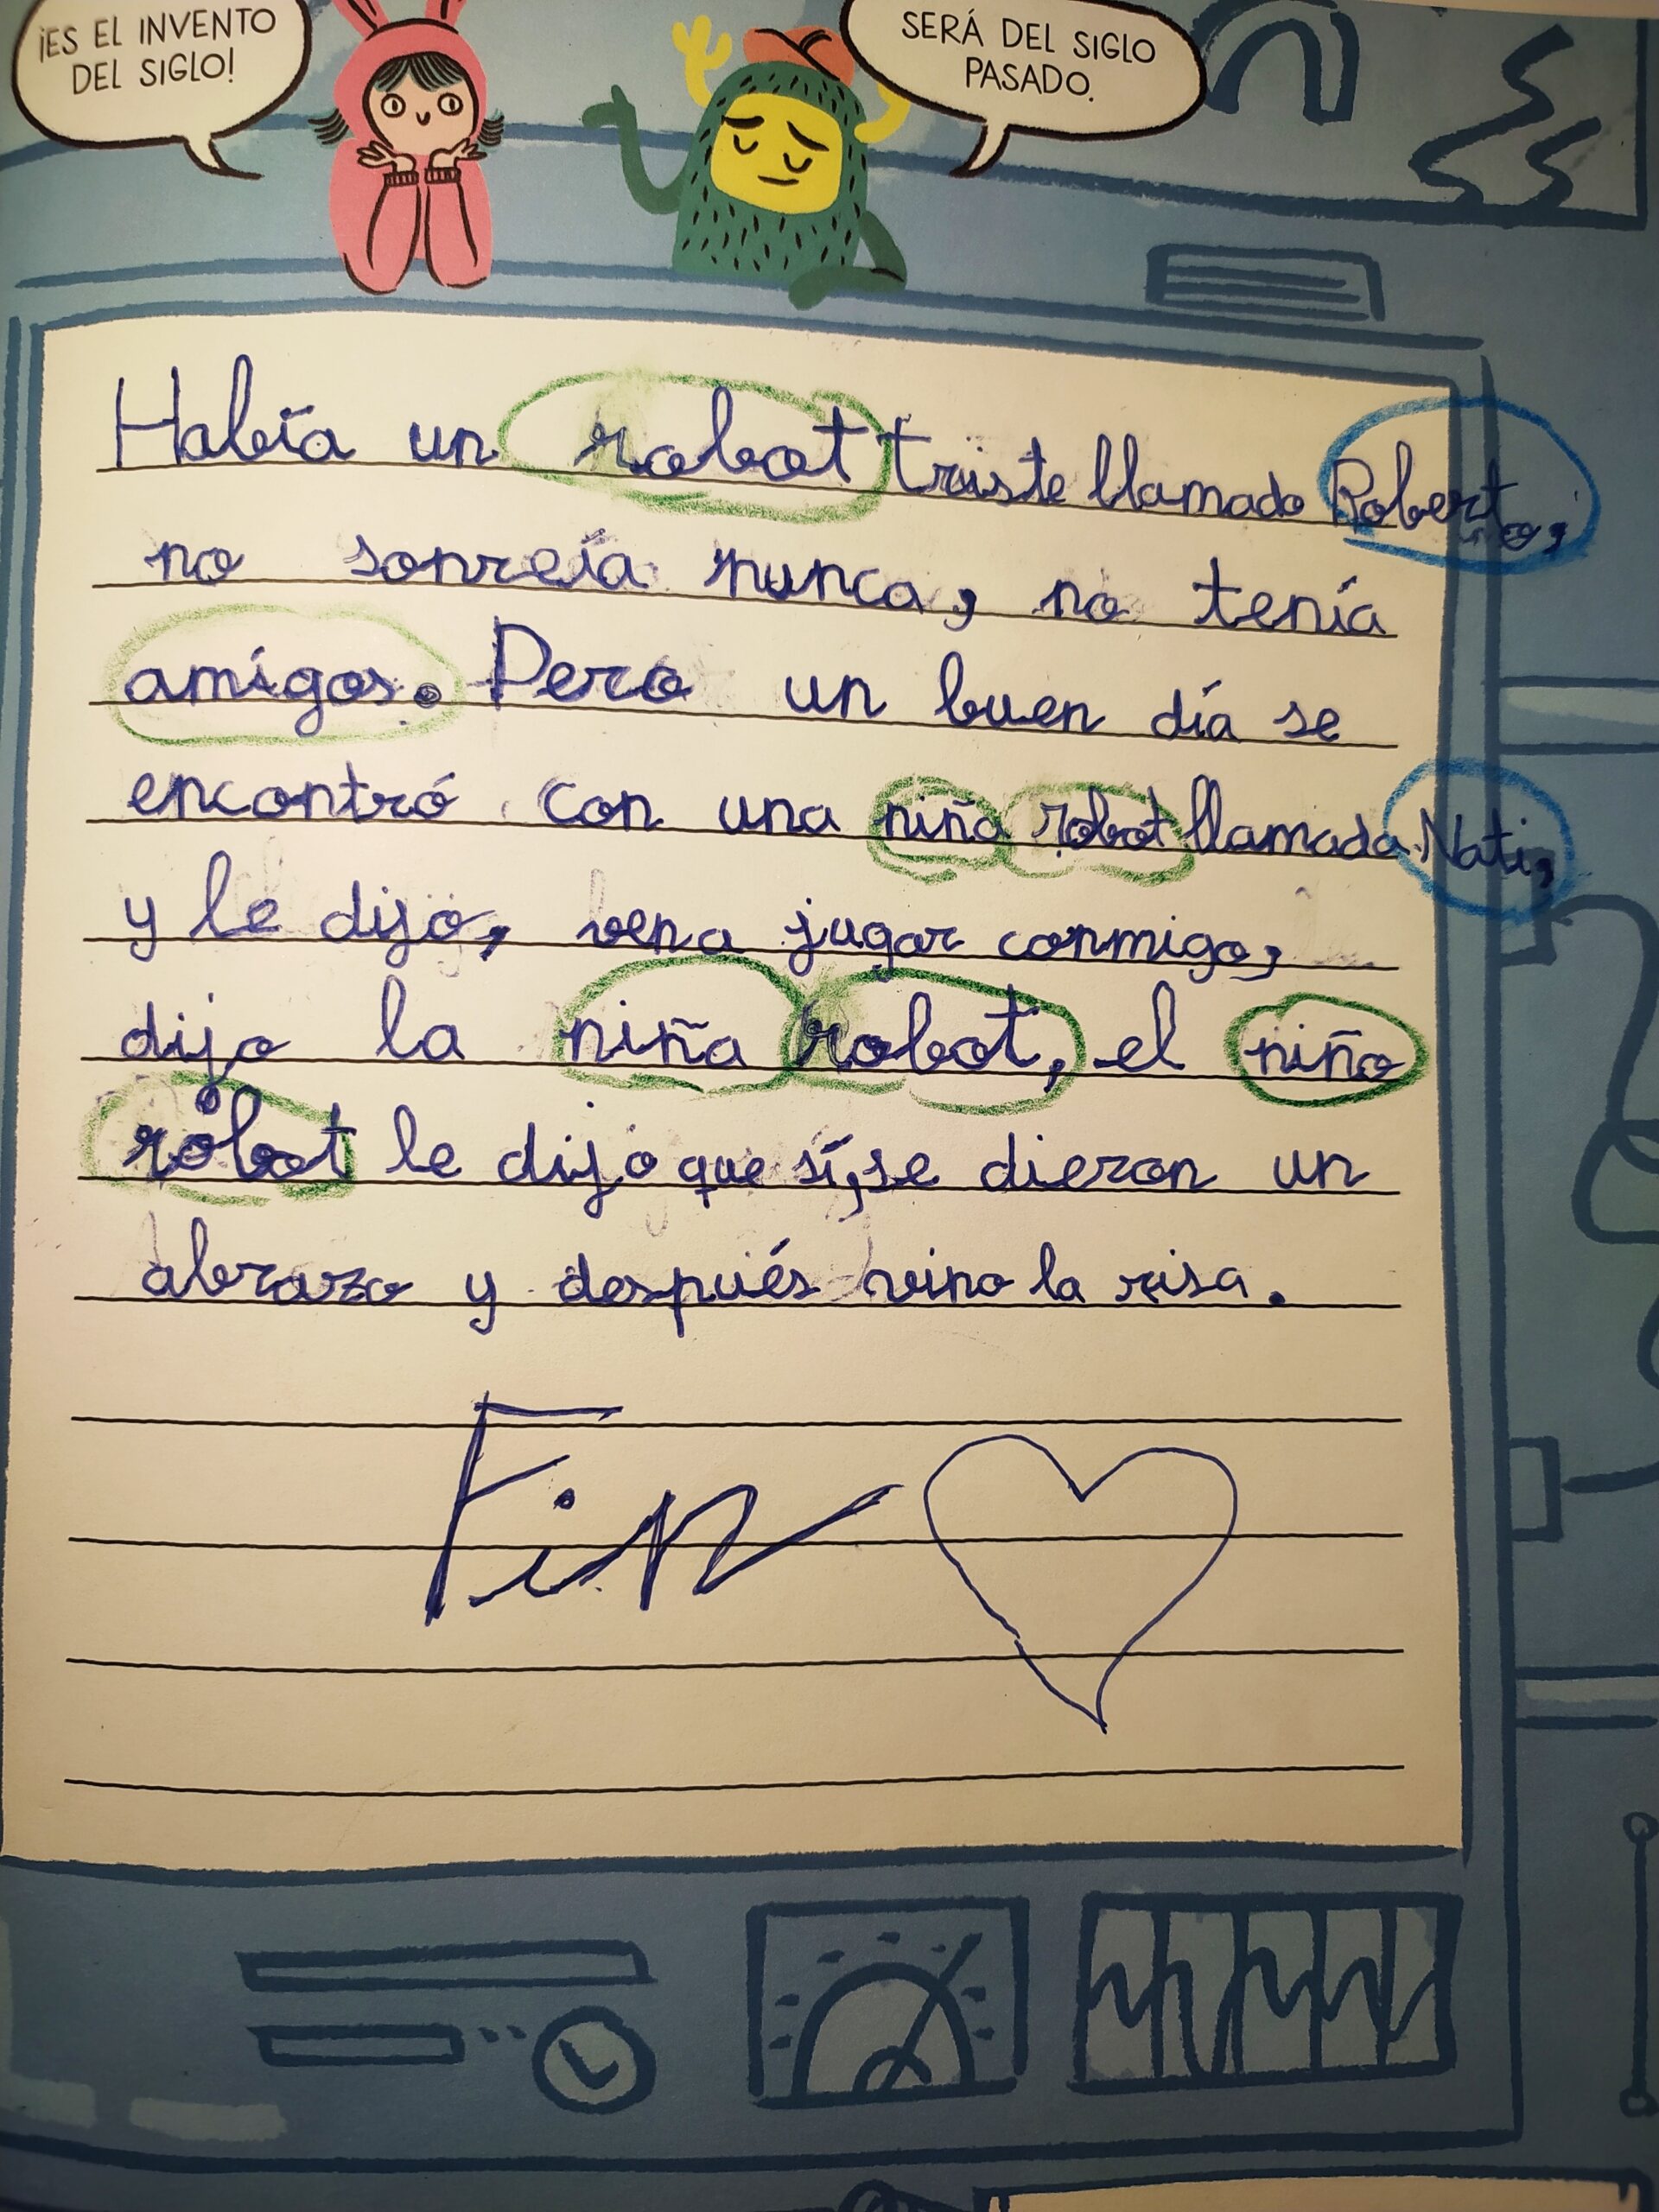 ¡ES EL INVENTO
DEL SIGLO!
SERÁ DEL SIGLO
PASADO.
Había un robot triste llamado Roberto,
no sonreía nunca, no tenía
amigos. Pero un buen día se
encontró con una niña robot llamada Nati,
y le dijo, ven a jugar conmigo,
dijo la niña robot, el niño
robot le dijo que sí, se dieron un
abrazo y después vino la risa.
Fin